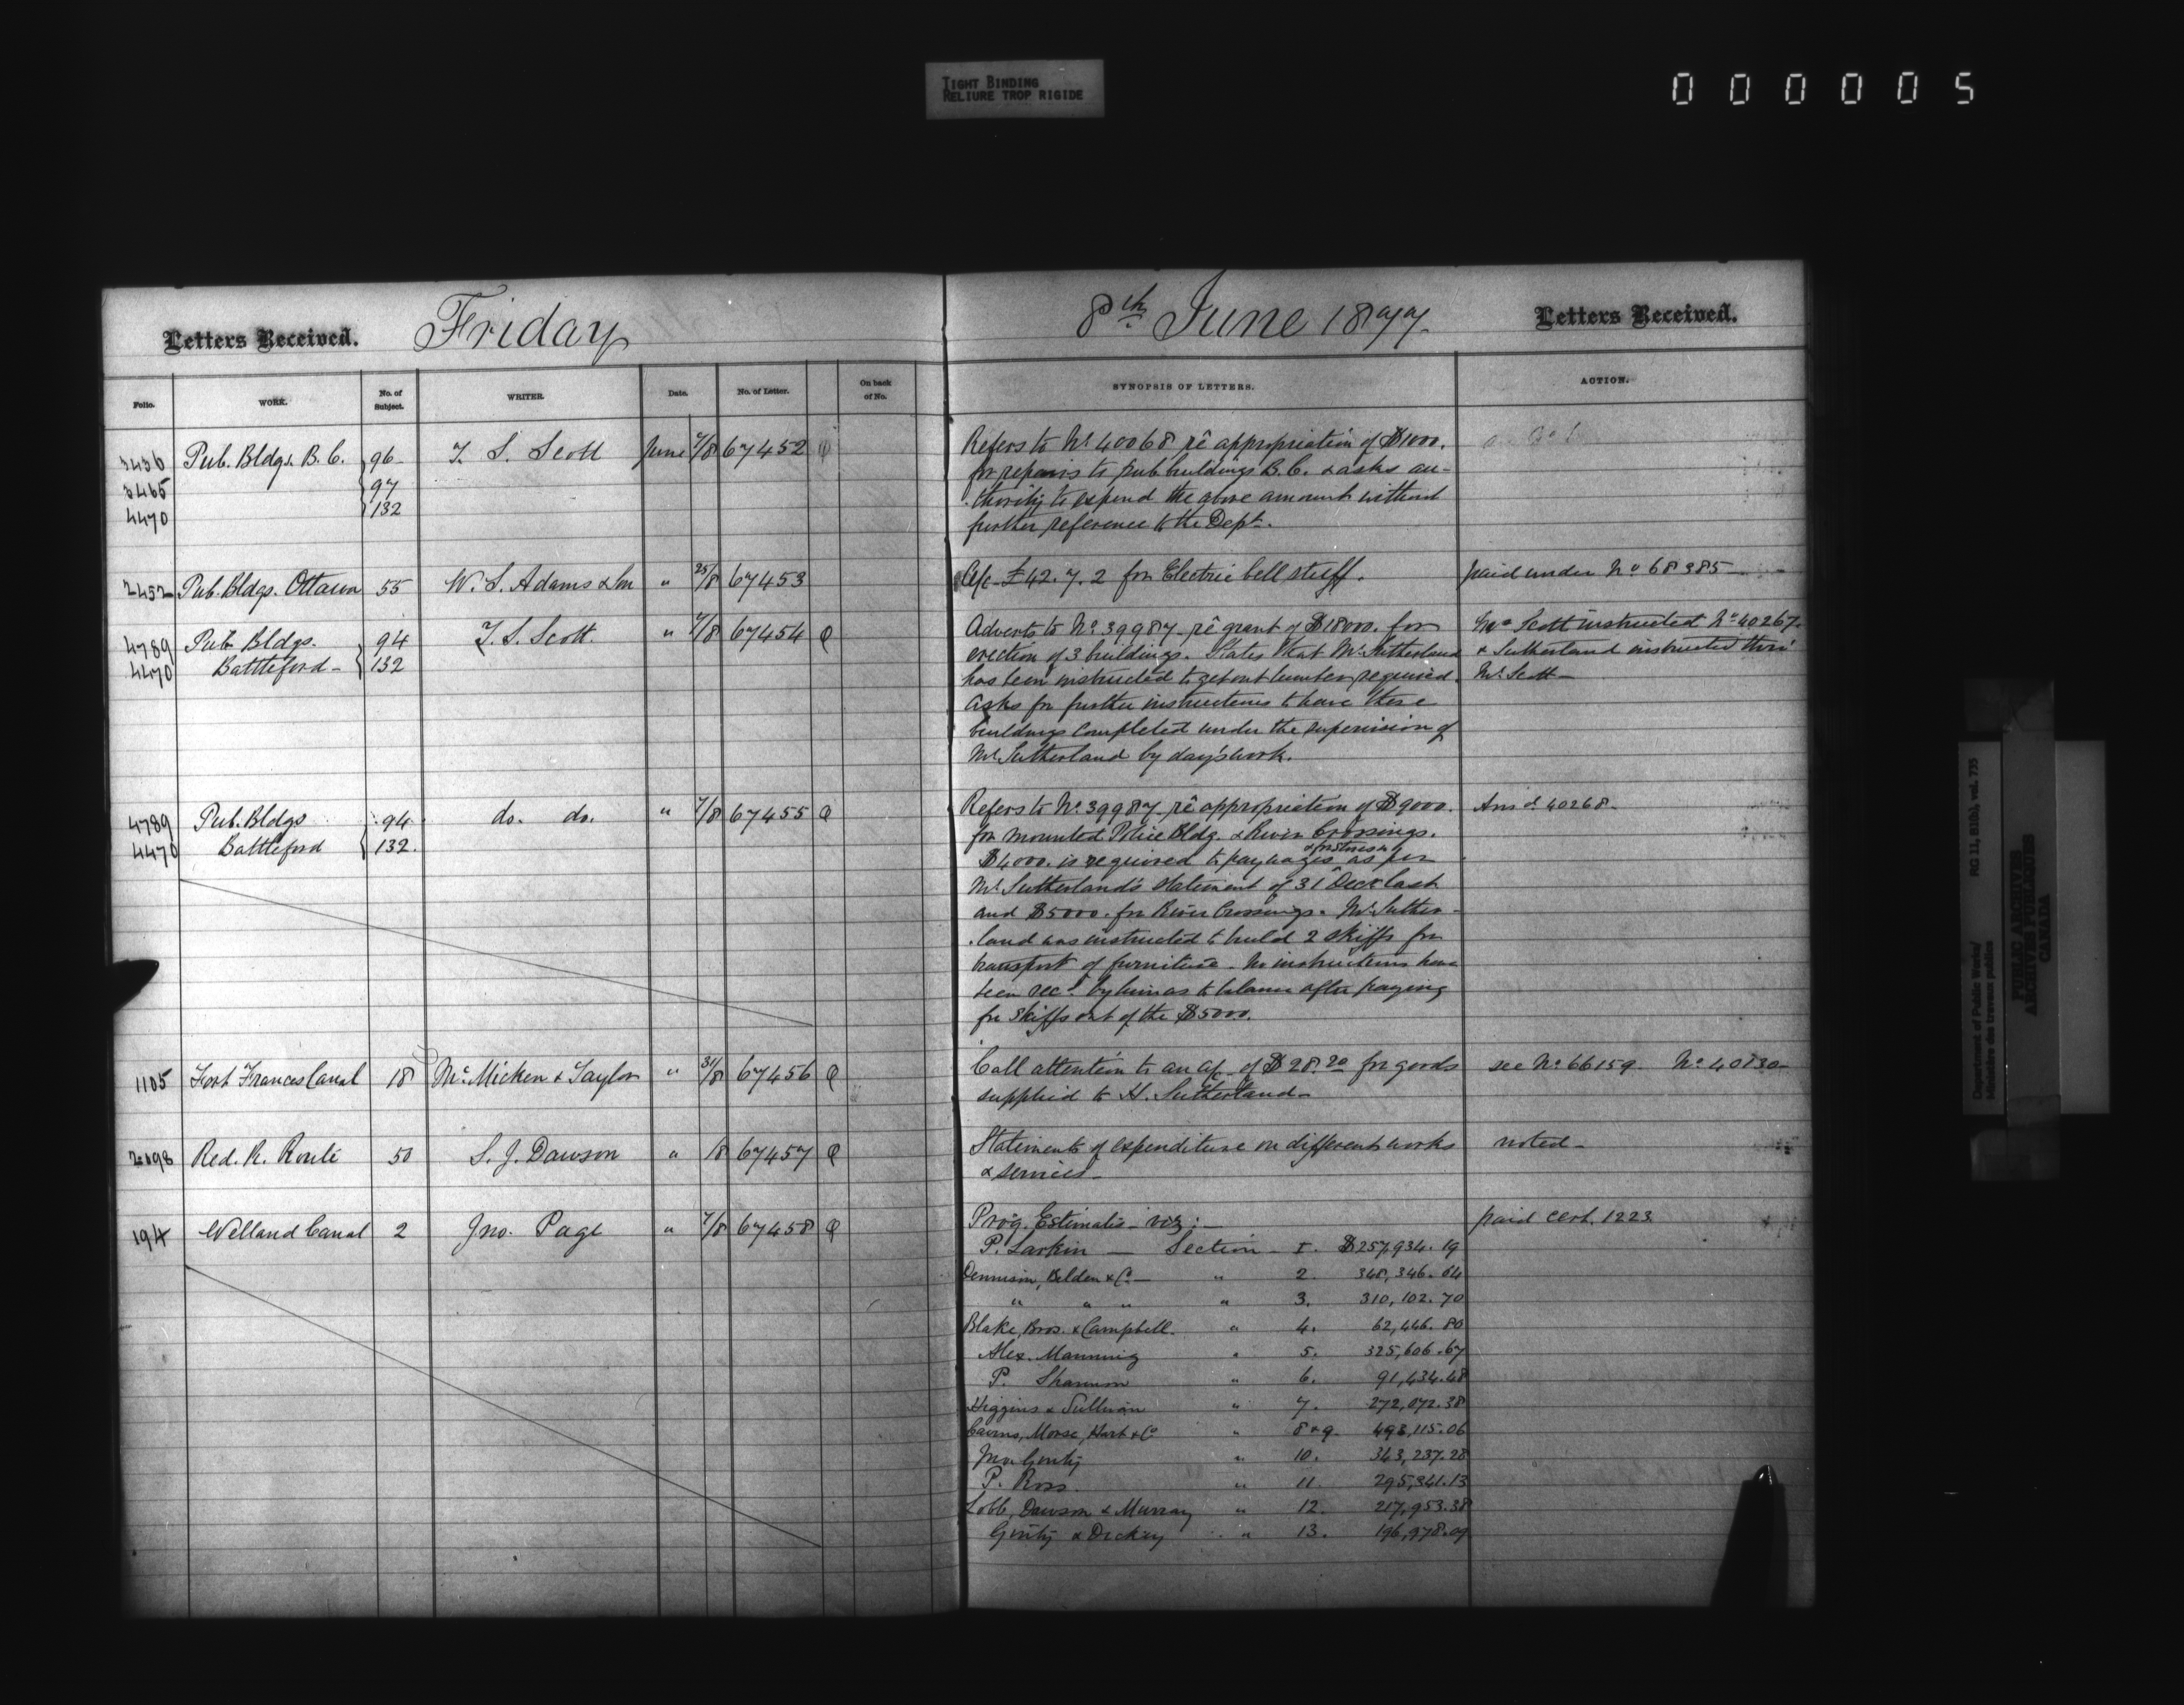 TIGHT BINDING
RELIURE TROP RIGIDE
000005
Letters Received. Friday
8th June 1877. Letters Received.
Folio. WORK. No. of Subject. WRITER. Date. No. of Letter. On back of No. SYNOPSIS OF LETTERS. ACTION.
3436 Pub. Bldgs. B.C. 96 T. S. Scott June 7/8 67452 Refers to No. 40068 rê appropriation of $1000.
3465 97 for repairs to pub buildings B.C. & asks au-
4470 132 thority to expend the above amount without
further reference to the Dept.
2452 Pub. Bldgs. Ottawa 55 W. S. Adams & Son " 25/8 67453 A/c £42.7.2 for Electric bell stuff. paid under No 68385
4789 Pub Bldgs. 94 T. S. Scott. " 7/8 67454 Adverts to No. 39987 rê grant of $18000. for Mr Scott instructed No 40267.
4470 Battleford 132 erection of 3 buildings. States that Mr. Sutherland & Sutherland instructed thro'
has been instructed to get out lumber required. Mr. Scott
Asks for further instructions to have these
buildings completed under the supervision of
Mr. Sutherland by day's work.
4789 Pub. Bldgs 94 do. do. " 7/8 67455 Refers to No. 39987 rê appropriation of $9000. Ansd 40268.
4470 Battleford 132. for Mounted Police Bldg. & River Crossings.
$4000. is required to pay wages as per
Mr. Sutherland's statement of 31 Decr last
and $5000. for River Crossings. Mr. Suther-
land was instructed to build 2 skiffs for
transport of furniture. No instructions have
been recd. by him as to balance after paying
for skiffs out of the $5000.
1105 Fort Frances Canal 18 McMicken & Taylor " 31/8 67456 Call attention to an a/c of $28.20 for goods see No. 66159 No. 40830
supplied to H. Sutherland
2098 Red. R. Route 50 S. J. Dawson " /8 67457 Statements of expenditure on different works noted
& services
194 Welland Canal 2 Jno. Page " 7/8 67458 Prog. Estimates viz: paid cert. 1223
P. Larkin Section 1. $257,934.19
Dennison, Belden & Co. " 2. 348,346.64
" " " " 3. 310,102.70
Blake, Bros. & Campbell. " 4. 62,446.80
Alex. Manning " 5. 325,606.67
P. Shannon " 6. 91,434.48
Higgins & Sullivan " 7. 272,072.38
Cairns, Morse, Hart & Co " 8 & 9. 493,115.06
Jno Ginty " 10. 343,237.28
P. Ross. " 11. 295,341.13
Lobb, Dawson & Murray " 12. 217,953.38
Ginty & Dickey " 13. 196,978.09
Department of Public Works/
Ministère des travaux publics
RG 11, B1(b), vol. 735
PUBLIC ARCHIVES
ARCHIVES PUBLIQUES
CANADA